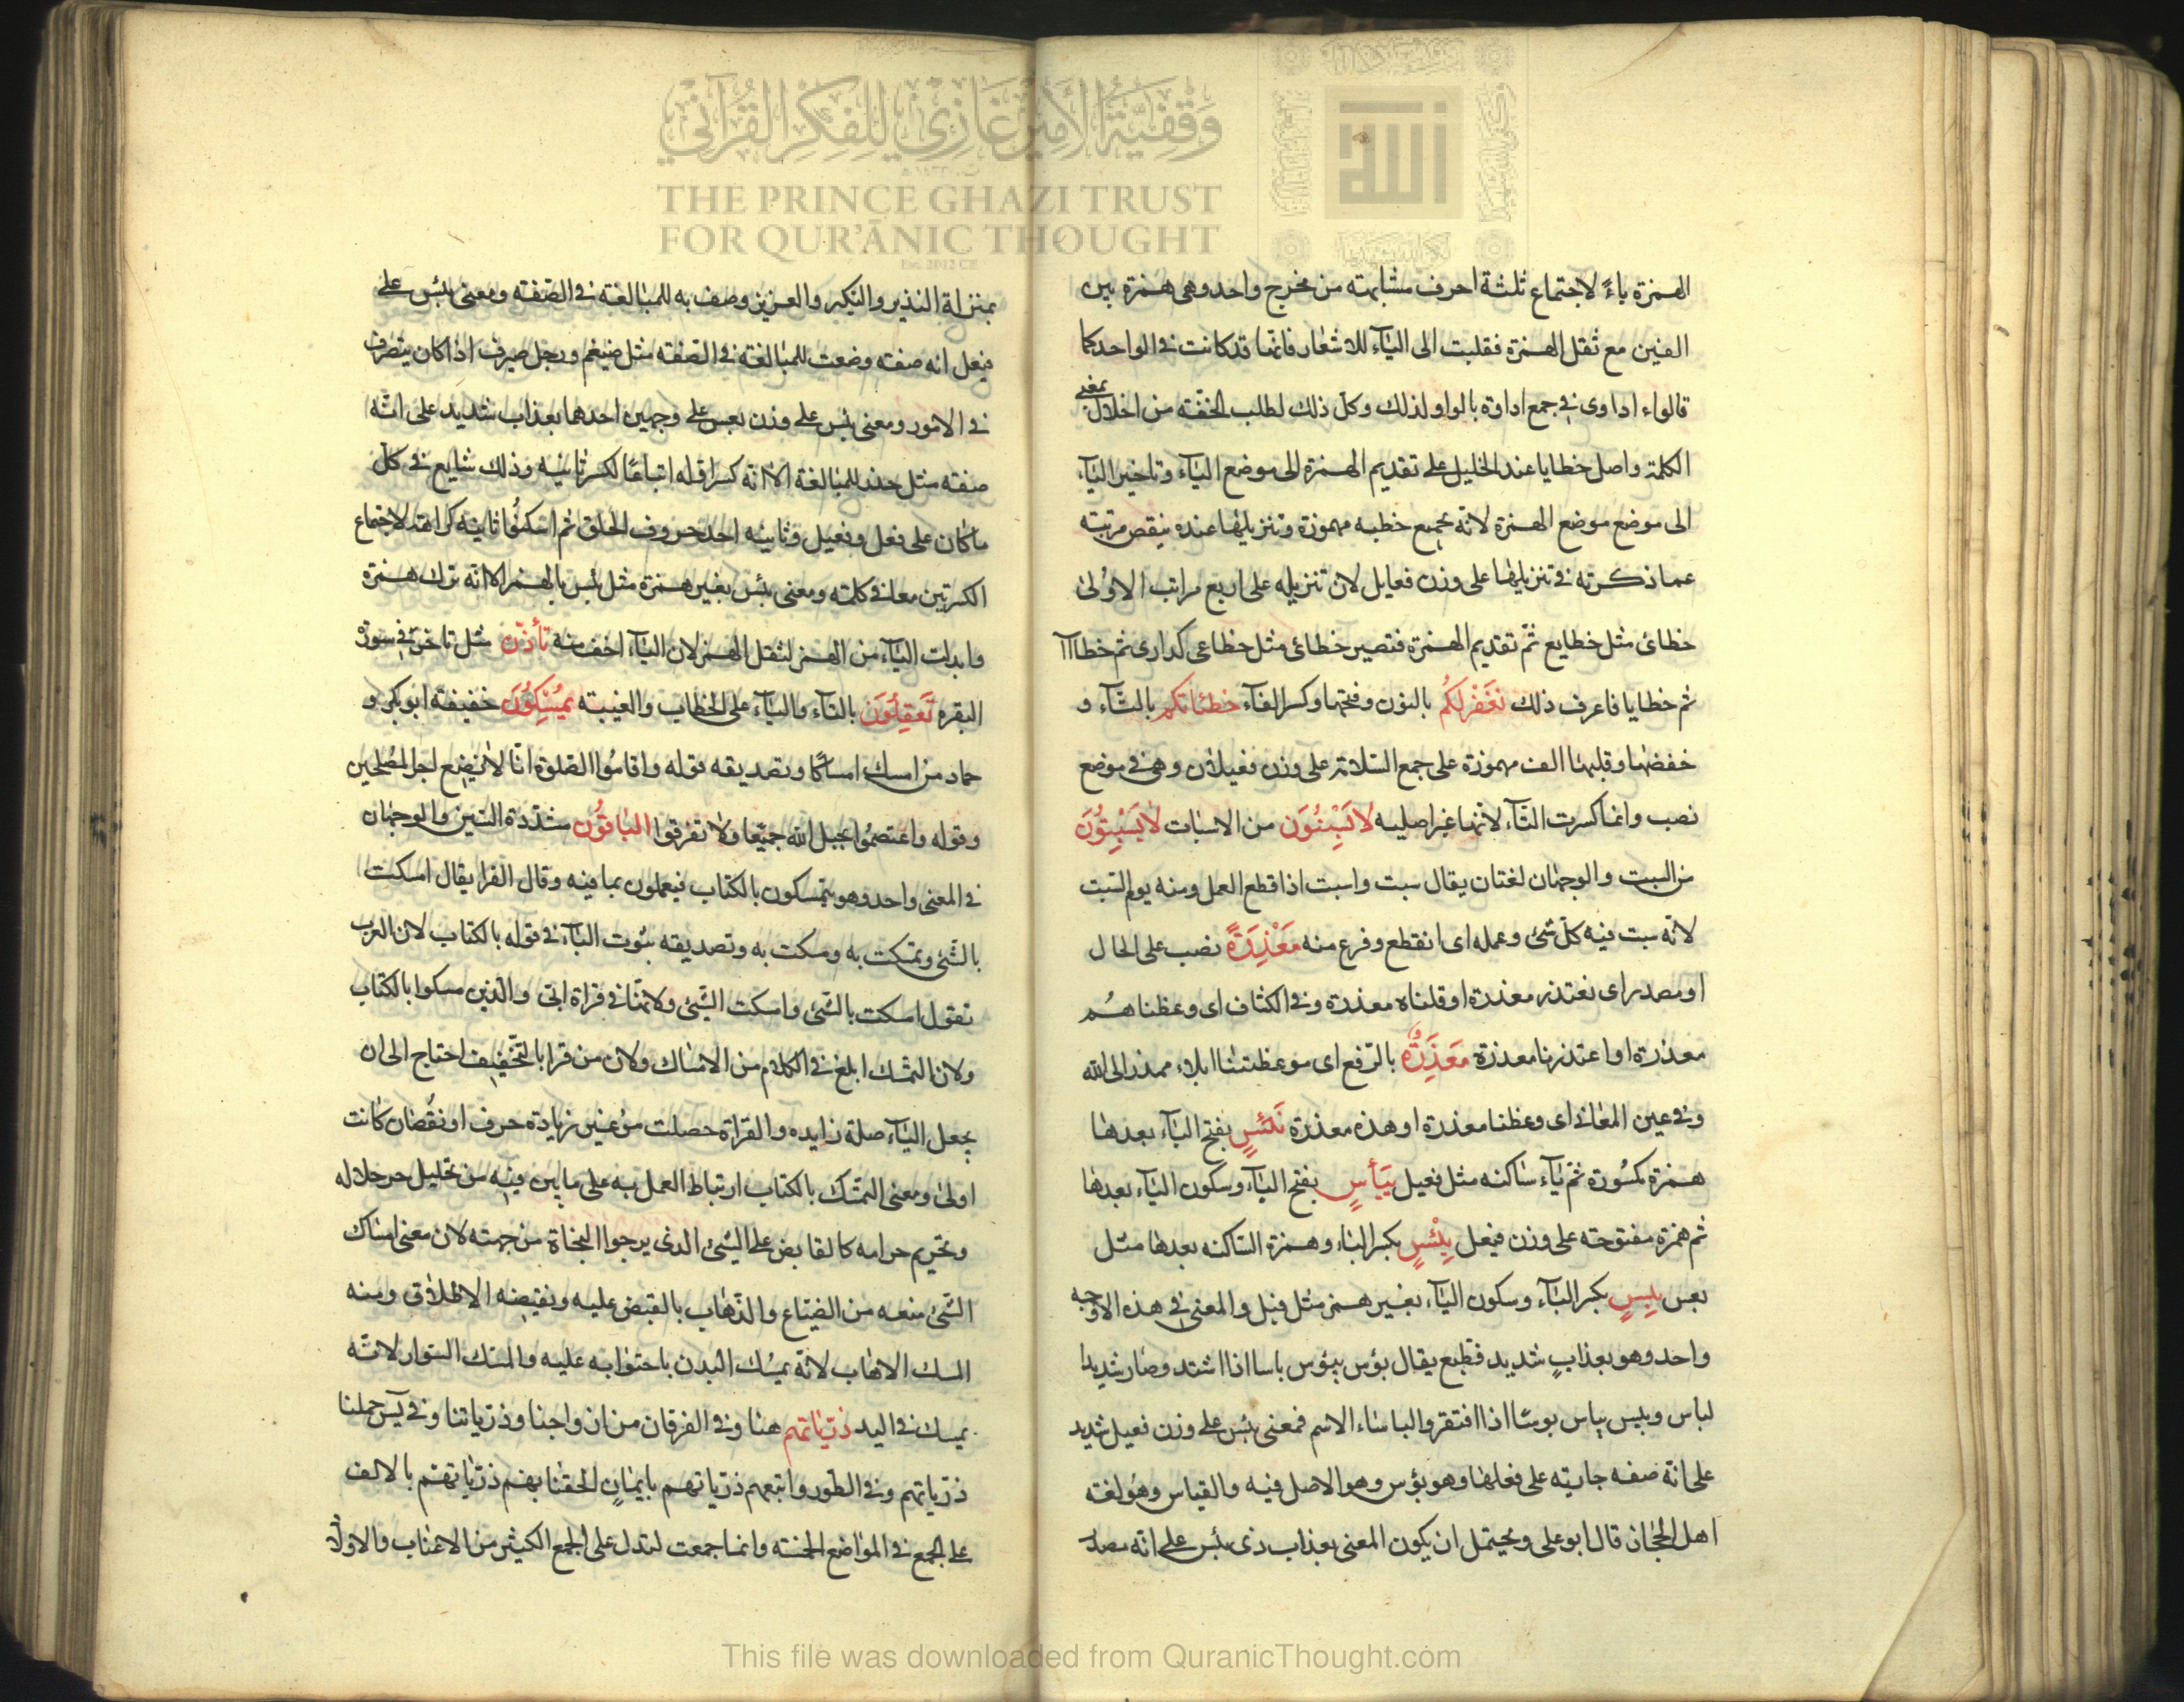 وقفية الأمير غازي للفكر القرآني
THE PRINCE GHAZI TRUST
FOR QUR'ĀNIC THOUGHT
Est. 2012 CE
الهمزة ياءً لاجتماع ثلثة احرف متشابهته من مخرج واحد وهى همزة بين
الفين مع ثقل الهمزة فقلبت الى اليآء للاشعار فانها قد كانت فى الواحد كما
قالوا اداوى فى جمع اداوة بالواو لذلك وكل ذلك لطلب الخفته من اخلال بمعنى
الكلمة واصل خطايا عند الخليل على تقديم الهمزة الى موضع اليآء وتاخير اليآء
الى موضع موضع الهمزة لانه بجمع خطيه مهموزة وتنزيلها عنده ينقص مرتبته
عما ذكرته فى تنزيلها على وزن فعايل لان تنزيله على اربع مراتب الاولى
خطائ مثل خطايع ثم تقديم الهمزة فتصير خطائى مثل خطاعى كدارى ثم خطاآا
ثم خطايا فاعرف ذلك نغفر لكم بالنون وفتحها وكسر الفآء خطئاتكم بالتآء و
خفضها وقلبها الف مهموزة على جمع السلامة على وزن فعيلات وهى فى موضع
نصب وانما كسرت التآء لانها غير اصليه لا يسبتون من الاسبات لا يسبتون
من السبت والوجهان لغتان يقال سبت واسبت اذا قطع العمل ومنه يوم السبت
لانه سبت فيه كل شئ وعمله اى انقطع وفرغ منه معذرةً نصب على الحال
او مصدر اى نعتذر معذرة او قلناه معذرة وفى الكشاف اى وعظناهم
معذرة او اعتذرنا معذرة معذرةٌ بالرفع اى موعظتنا ابلاء عذر الى الله
وفى عين المعانى اى وعظنا معذرة او هذه معذرة بَئِيسٍ بفتح البآء بعدها
همزة مكسورة ثم يآء ساكنه مثل فعيل بَيْأَسٍ بفتح البآء وسكون اليآء بعدها
ثم همزة مفتوحته على وزن فيعل بِئْسٍ بكسر الباء وهمزة الساكنه بعدها مثل
بعس بِيسٍ بكسر البآء وسكون اليآء بغير همز مثل فيل والمعنى فى هذه الاوجه
واحد وهو بعذابٍ شديد فظيع يقال بؤس يبؤس باسا اذا اشتد وصار شديدا
لباس وبيس يباس بوسًا اذا افتقر والباساء الاسم فمعنى بئيس على وزن فعيل شديد
على انه صفه جارية على فعلها وهو بؤس وهو الاصل فيه والقياس وهو لغته
اهل الحجاز قال ابو على ويحتمل ان يكون المعنى بعذاب ذى بئيس على انه مصدر
بمنزلة النذير والنكير والعزيز وصف به للمبالغته فى الصفته ومعنى بيئس على
فيعل انه صفته وضعت للمبالغته فى الصفته مثل ضيغم ورجل صيرف اذا كان يتصرف
فى الامور ومعنى بئس على وزن بعس على وجهين احدهما بعذاب شديد على انه
صفته مثل حذر للمبالغة الا انه كسر اوله اتباعًا لكسر ثانيه وذلك شايع فى كل
ما كان على فعل وفعيل وثانيه احد حروف الحلق ثم اسكنوا ثانيه كراهته لاجتماع
الكسرتين معا فى كلمته ومعنى بيس بغير همزة مثل بئس بالهمز الا انه ترك همزة
وابدلت اليآء من الهمز لثقل الهمز لان اليآء اخف منه تأذّن مثل تاخر فى سورة
البقره تَعقِلُون بالتآء واليآء على الخطاب والغيبته يُمْسِكُون خفيفته ابوبكر و
حماد من امسك امساكًا وتصديقه قوله واقاموا الصلوة انا لا نضيع اجر المصلحين
وقوله واعتصموا بحبل الله جميعا ولا تفرقوا الباقُون مشدّدة السين والوجهان
فى المعنى واحد وهو يتمسكون بالكتاب فيعملون بما فيه وقال الفرا يقال امسكت
بالشئ وتمسكت به ومسكت به وتصديقه ثبوت البآء فى قوله بالكتاب لان العرب
تقول امسكت بالشئ وامسكت الشئ ولانها فى قراة ابى والذين مسكوا بالكتاب
ولان التمسك ابلغ فى الكلام من الامساك ولان من قرا بالتخفيف احتاج الى ان
يجعل البآء صلة زايده والقراة حصلت من غير زيادة حرف او نقصان كانت
اولى ومعنى التمسك بالكتاب ارتباط العمل به على ما بين فيه من تحليل حلاله
وتحريم حرامه كالقابض على الشئ الذى يرجوا النجاة من جهته لان معنى امساك
الشئ منعه من الضياع والذهاب بالقبض عليه ونقيضه الاطلاق ومنه
المسك الاهاب لانه يمسك البدن باحتوابه عليه والمسك السوار لانه
يمسك فى اليد ذرّياتهم هنا وفى الفرقان من ازواجنا وذرياتنا وفى يس حملنا
ذرياتهم وفى الطور واتبعهم ذرياتهم بايمانٍ الحقنا بهم ذرياتهم بالالف
على الجمع فى المواضع الخمسته وانما جمعت لتدل على الجمع الكيثر من الاعقاب والاولاد
This file was downloaded from QuranicThought.com